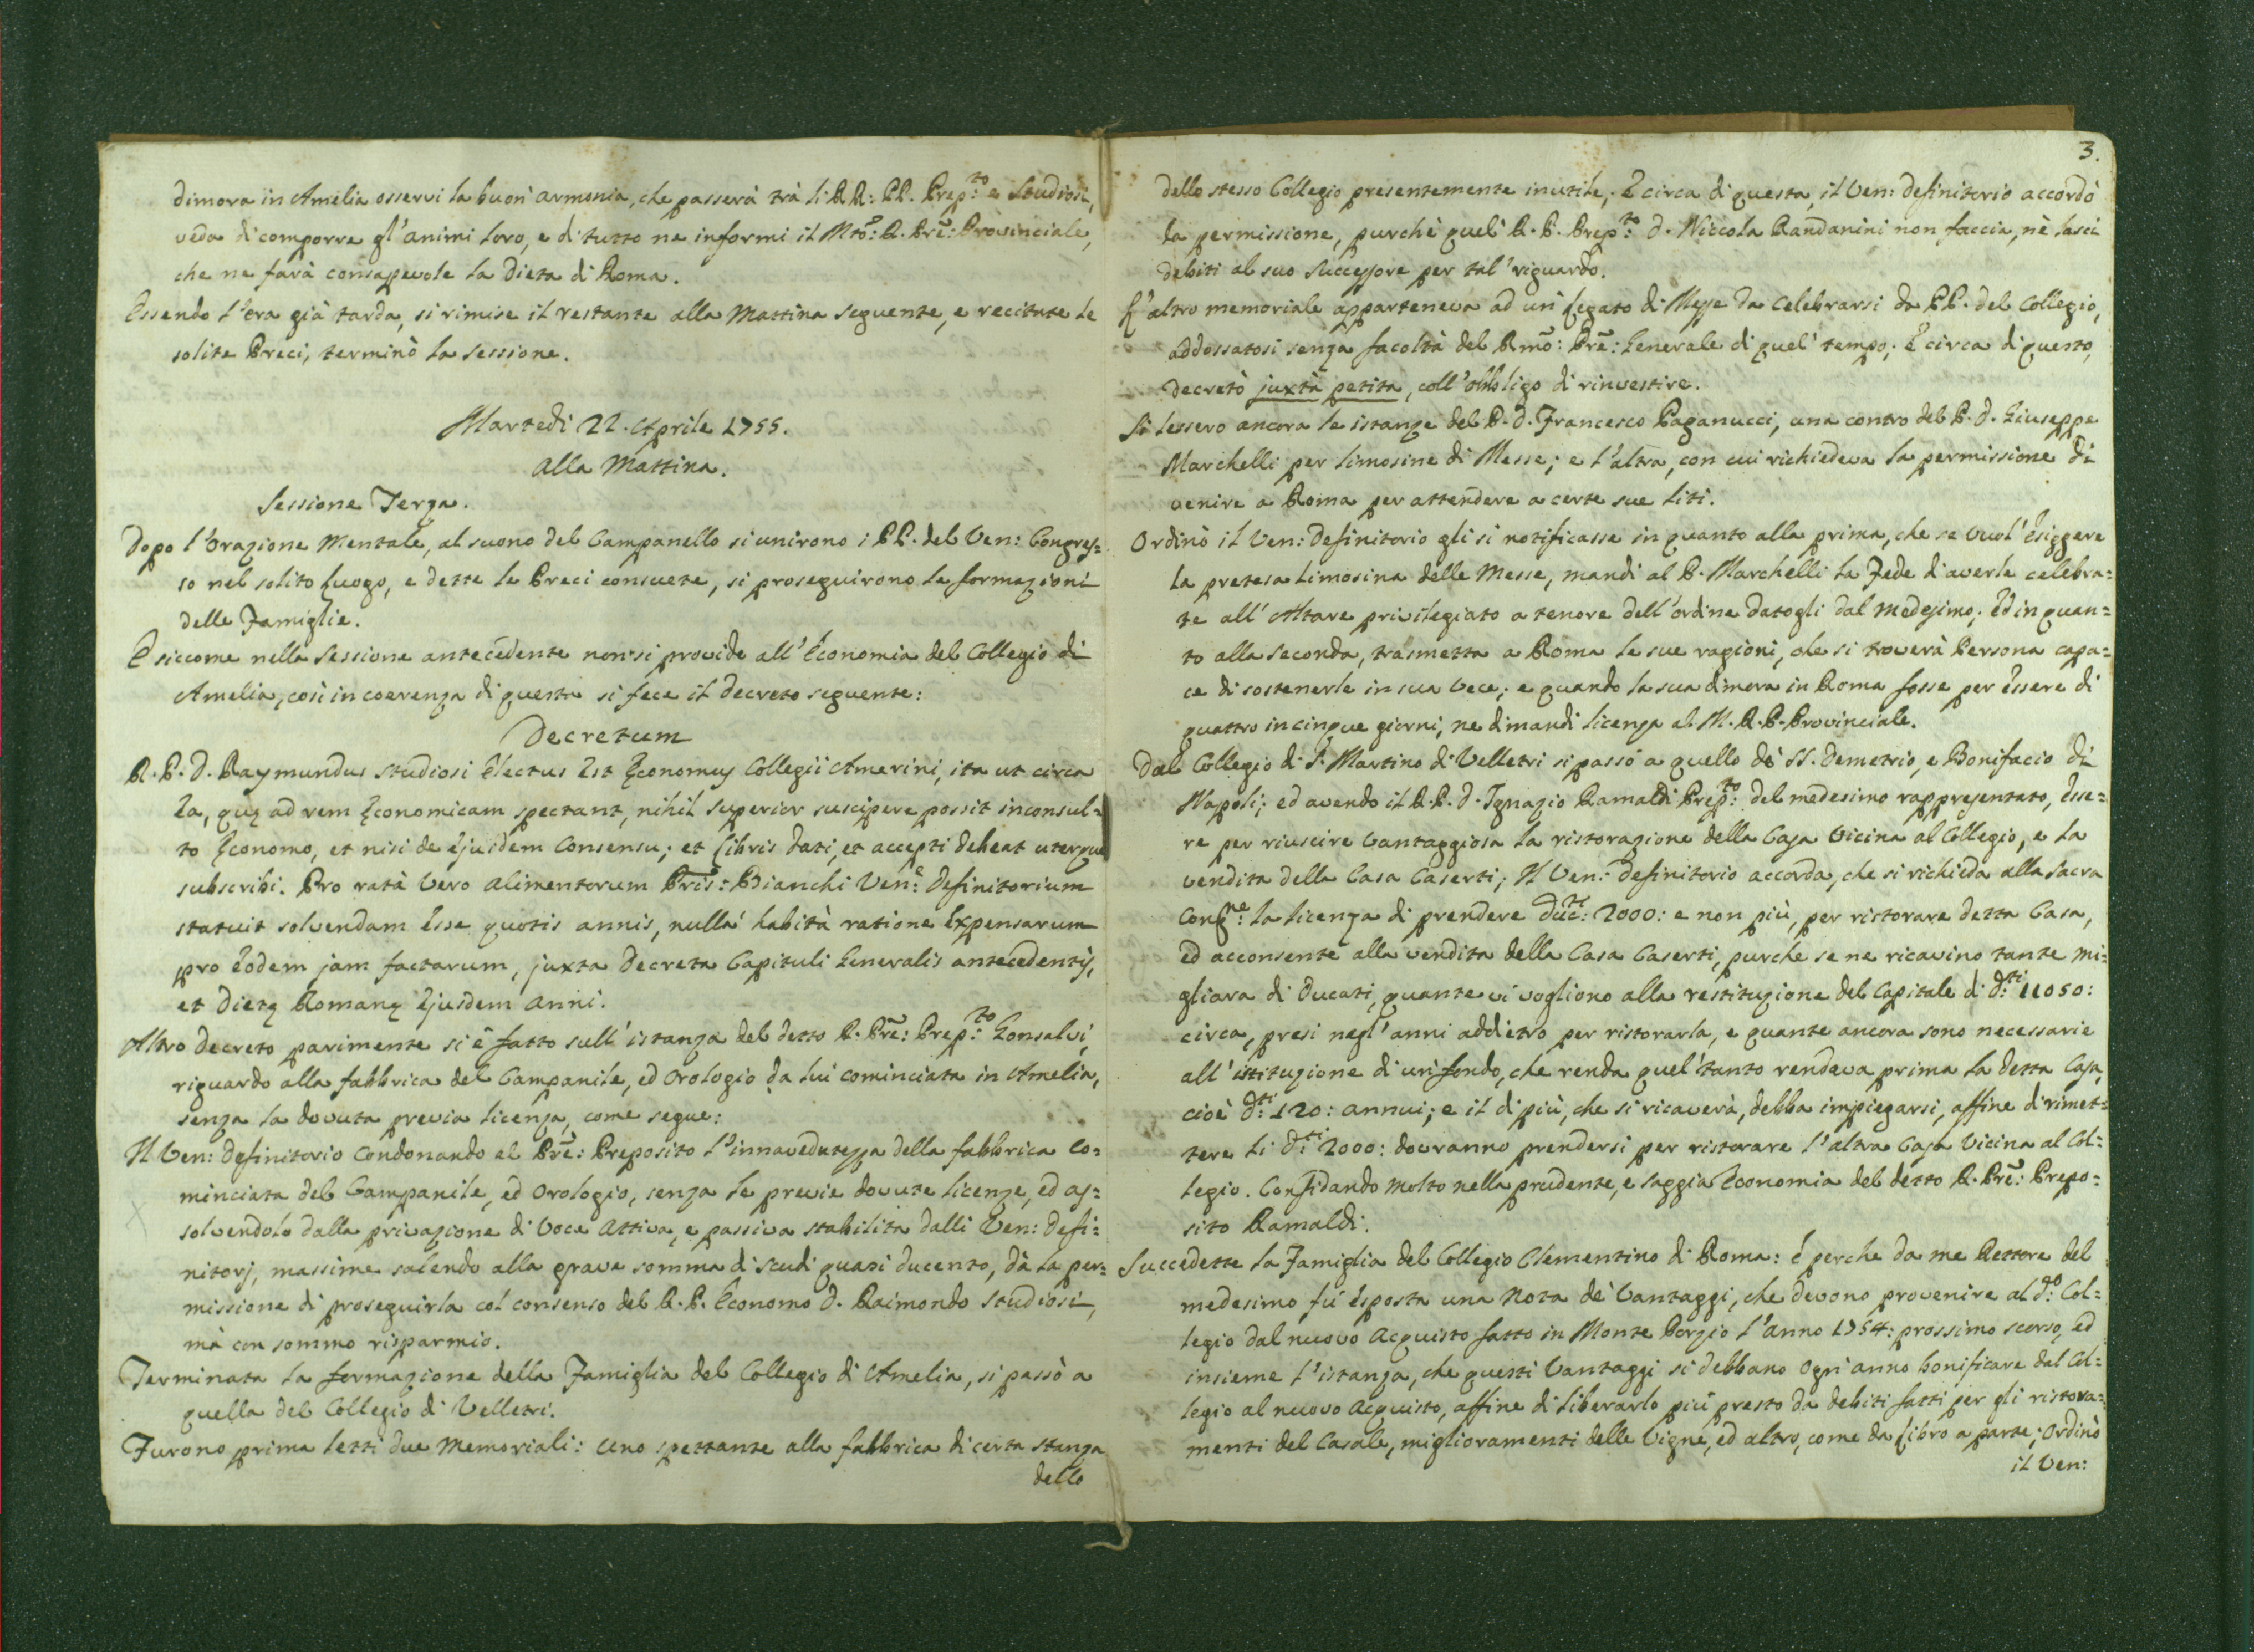 dimora in Amelia osservi la buon' armonia, che passerà trà li RR: PP. Prep.to e Studiosi,
veda di comporre gl'animi loro, e di tutto ne informi il Mto: R. Prē: Provinciale,
che ne farà consapevole la Dieta di Roma.
Essendo l'ora già tarda, si rimise il restante alla Mattina seguente, e recitate le
solite Preci, terminò la sessione.
Martedì 22. Aprile 1755.
alla Mattina.
Sessione Terza.
Dopo l'Orazione Mentale, al suono del Campanello si unirono i PP. del Ven: Congres=
so nel solito luogo, e dette le Preci consuete, si proseguirono le formazioni
delle Famiglie.
E siccome nella Sessione antecedente non si provide all'Economia del Collegio di
Amelia, così in coerenza di questa si fece il decreto seguente:
Decretum
R. P. D. Raymundus Studiosi Electus Est Ęconomus Collegii Amerini, ita ut circa
Ea, quę ad rem Ęconomicam spectant, nihil Superior suscipere possit inconsul=
to Ęconomo, et nisi de Ejusdem Consensu; et Libris dati, et accepti debeat uterque
subscribi. Pro ratà Vero alimentorum Prīs: Bianchi Ven:e Definitorium
statuit solvendam Esse quotis annis, nullà habità ratione Expensarum
pro Eodem jam factarum, juxta Decreta Capituli Generalis antecedentis,
et Dietę Romanę Ejusdem Anni.
Altro decreto parimente si è fatto sull' istanza del detto R. Prē: Prep.to Gonsalvi,
riguardo alla fabbrica del Campanile, ed Orologio da lui cominciata in Amelia,
senza la dovuta previa licenza, come segue:
Il Ven: Definitorio condonando al Prē: Preposito l'innavedutezza della fabbrica co=
minciata del Campanile, ed Orologio, senza le previe dovute licenze, ed as=
solvendolo dalla privazione di Voce attiva, e passiva stabilita dalli Ven: Defi=
nitorj, massime salendo alla grave somma di scudi quasi ducento, dà la per=
missione di proseguirla col consenso del R. P. Economo D. Raimondo Studiosi,
mà con sommo risparmio.
Terminata la formazione della Famiglia del Collegio di Amelia, si passò a
quella del Collegio di Velletri.
Furono prima letti due Memoriali: uno spettante alla fabbrica di certa stanza
dello
3.
dello stesso Collegio presentemente inutile; E circa di questa, il Ven: definitorio accordò
la permissione, purchè quel' R. P. Prep.to D. Niccola Randanini non faccia, nè lasci
debiti al suo Successore per tal' riguardo.
L'altro memoriale apparteneva ad un' Legato di Messe da Celebrarsi da PP. del Collegio,
addossatosi senza facoltà del Rmō: Prē: Generale di quel' tempo; E circa di questo,
decretò juxtà petita, coll' obbligo di rinvestire.
Si lessero ancora le istanze del P. D. Francesco Paganucci, una contro del P. D. Giuseppe
Marchelli per limosine di Messe; e l'altra, con cui richiedeva la permissione di
venire a Roma per attendere a certe sue liti.
Ordinò il Ven: Definitorio gli si notificasse in quanto alla prima, che se vuol' Esiggere
la pretesa limosina delle Messe, mandi al P. Marchelli la Fede d'averle celebra=
te all' Altare privilegiato a tenore dell'ordine datogli dal medesimo; Ed in quan=
to alla seconda, trasmetta a Roma le sue ragioni, che si troverà Persona capa=
ce di sostenerle in sua Vece; e quando la sua dimora in Roma fosse per Essere di
quattro in cinque giorni, ne dimandi licenza al M. R. P. Provinciale.
Dal Collegio di S. Martino di Velletri si passò a quello dè SS. Demetrio, e Bonifacio di
Napoli; ed avendo il R. P. D. Ignazio Ramaldi Prep.to del medesimo rappresentato, Esse=
re per riuscire vantaggiosa la ristorazione della Casa Vicina al Collegio, e la
vendita della Casa Caserti; Il Ven: Definitorio accorda, che si richieda alla Sacra
Cong.ne la licenza di prendere Duc.ti: 2000: e non più, per ristorare detta Casa,
ed acconsente alla vendita della Casa Caserti, purche se ne ricavino tante mi=
gliara di Ducati, quante vi vogliono alla restituzione del Capitale di D.ti 11050:
circa, presi negl'anni addietro per ristorarla, e quante ancora sono necessarie
all'istituzione di un' fondo, che renda quel' tanto rendeva prima la detta Casa,
cioè D.ti 120: annui; e il di più, che si ricaverà, debba impiegarsi, affine di rimet=
tere li D.ti 2000: dovranno prendersi per ristorare l'altra Casa Vicina al Col=
legio. Confidando molto nella prudente, e saggia Economia del detto R. Prē: Prepo=
sito Ramaldi.
Succedette la Famiglia del Collegio Clementino di Roma: è perche da me Rettore del
medesimo fù Esposta una Nota dè Vantaggi, che devono provenire al d.o Col=
legio dal nuovo Acquisto fatto in Monte Porzio l'Anno 1754: prossimo scorso, ed
insieme l'istanza, che questi Vantaggi si debbano Ogni anno bonificare dal Col=
legio al nuovo Acquisto, affine di liberarlo più presto da debiti fatti per gli ristora=
menti del Casale, miglioramenti delle Vigne, ed altro, come da Libro a parte; Ordinò
il Ven: